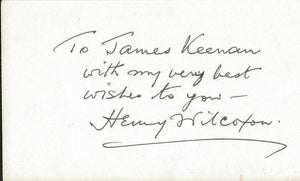 To James Keenan
with my very best
wishes to you —
Henry Wilcoxon.